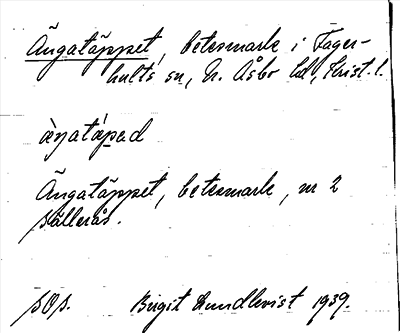 Ängatäppet, betesmark i Fager-
hults sn, N. Åsbo hd, Krist. l.
Ängatäppet, betesmark, nr 2
Källerås.
Birgit Lundkvist 1939.